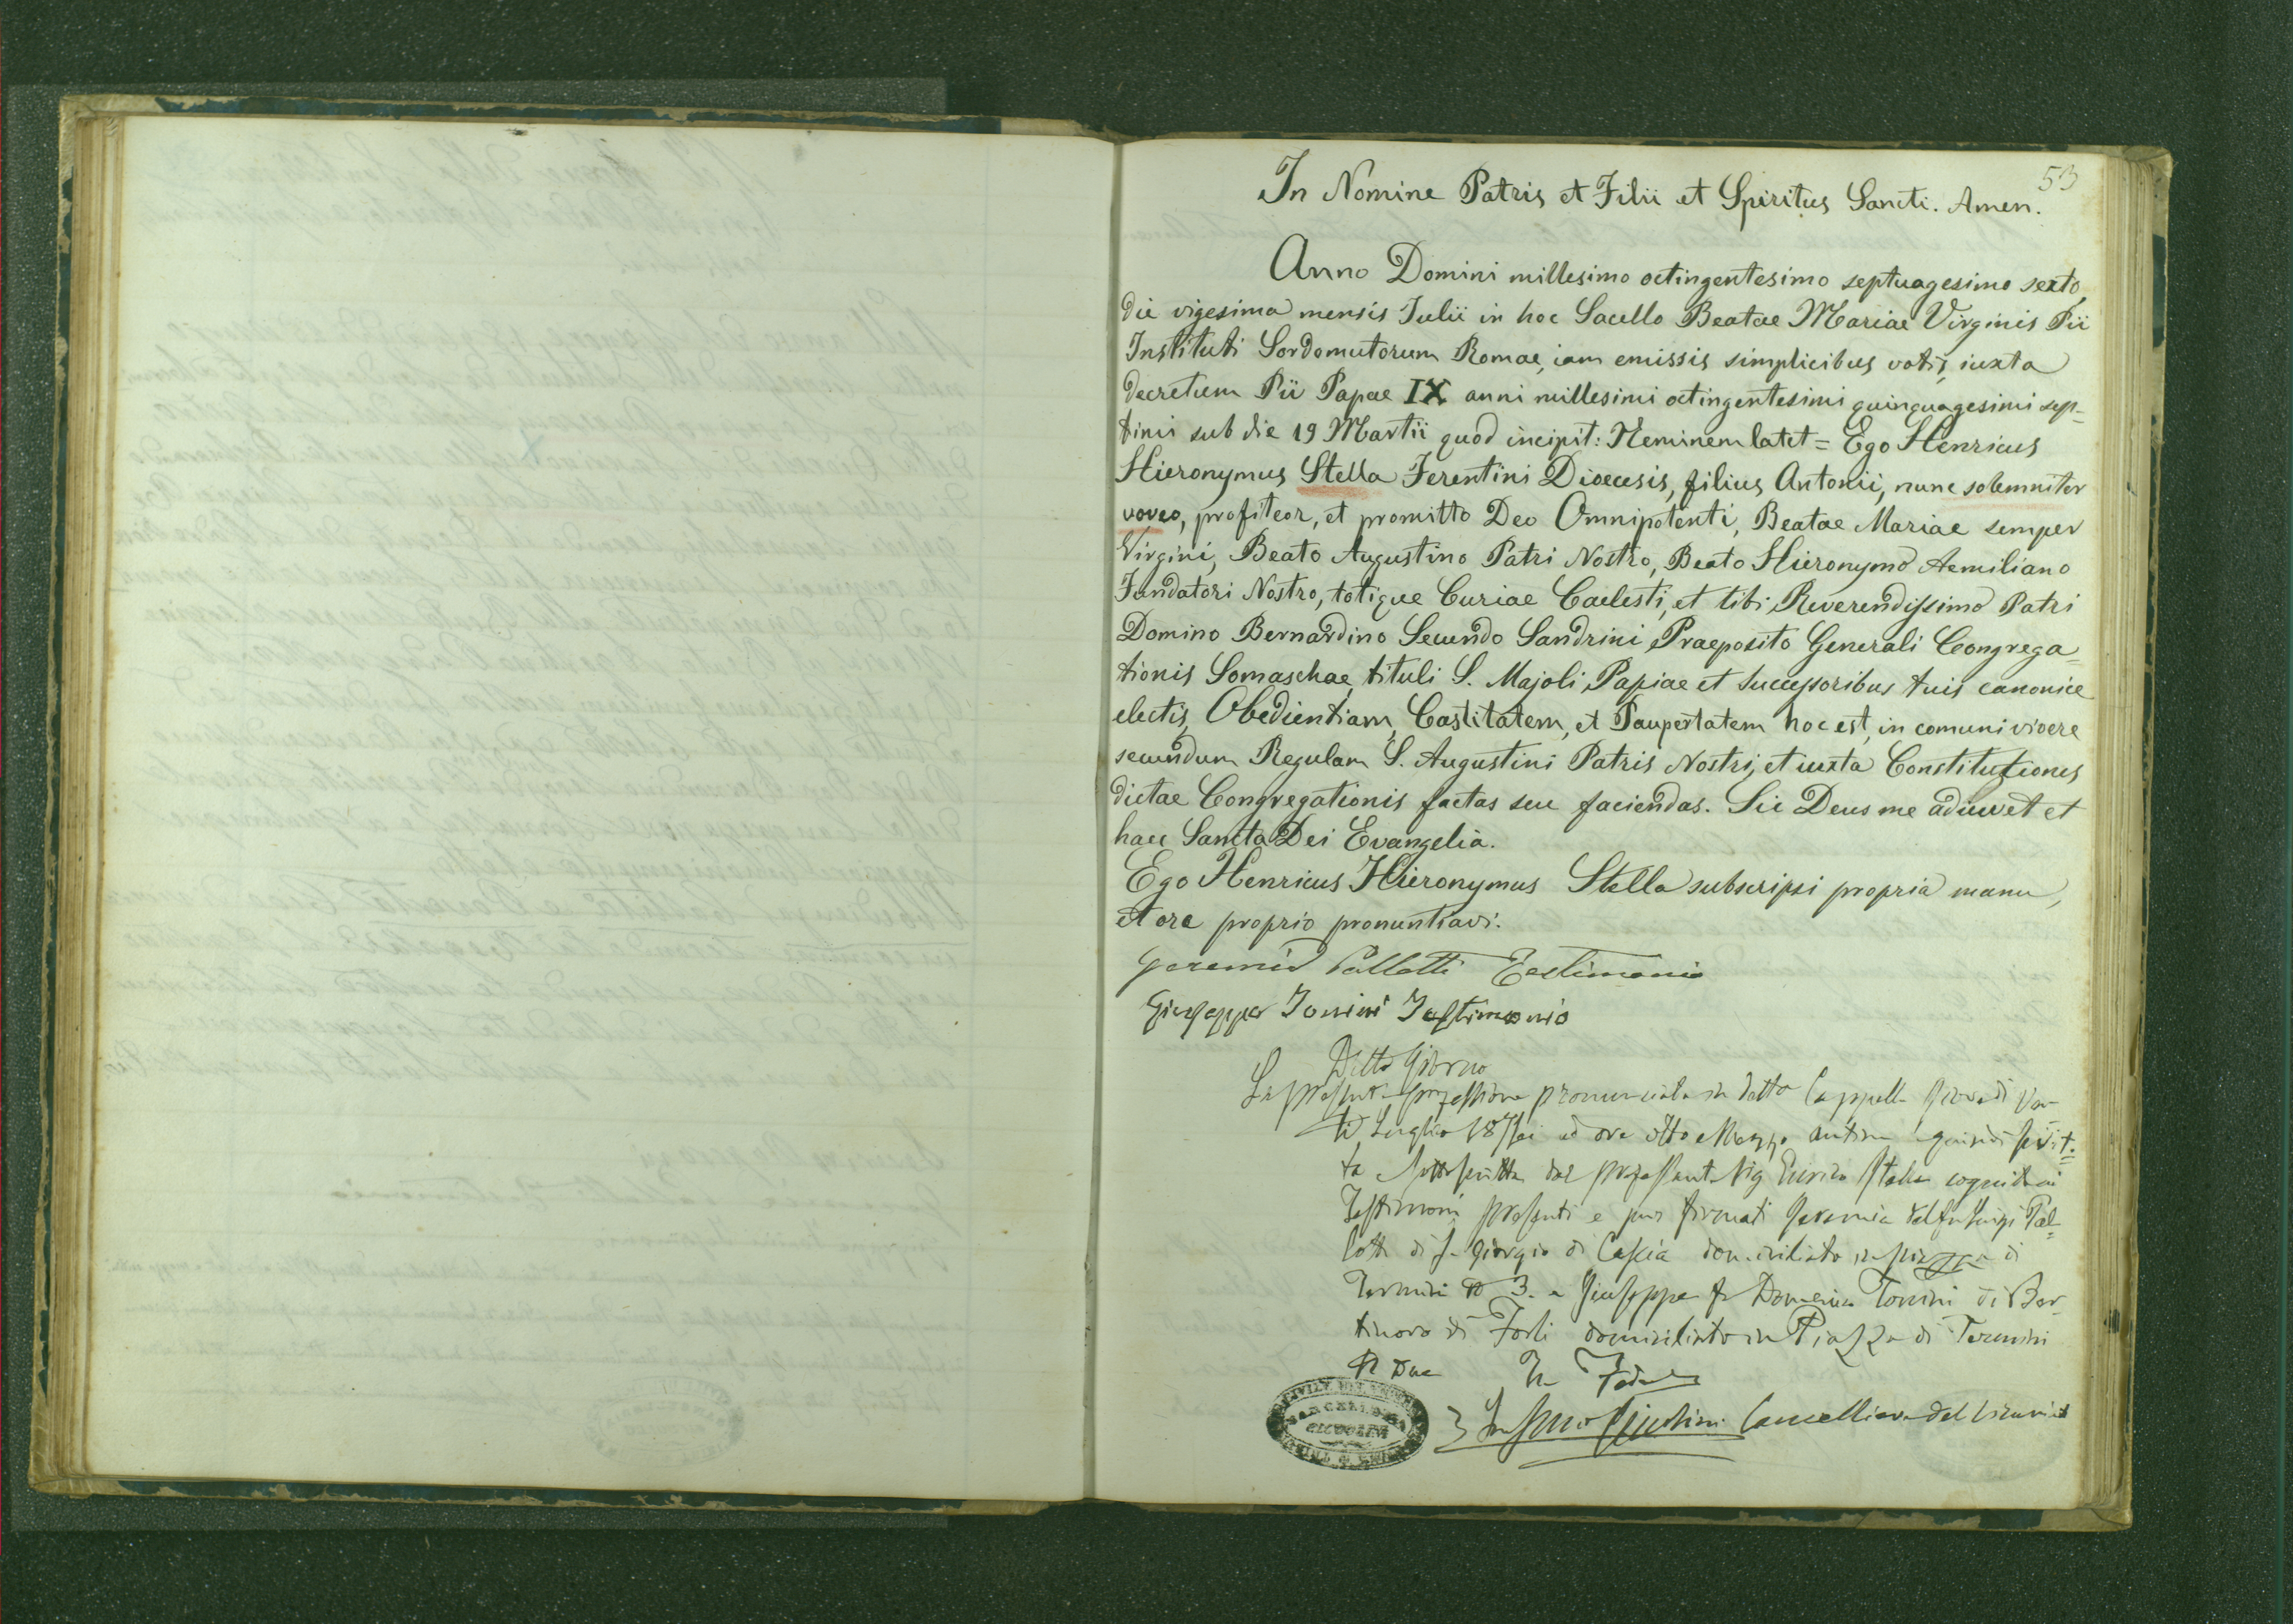 53
In Nomine Patris et Filii et Spiritus Sancti. Amen.
Anno Domini millesimo octingentesimo septuagesimo sexto,
die vigesima mensis Iulii in hoc Sacello Beatae Mariae Virginis Pii
Instituti Sordomutorum Romae, iam emissis simplicibus votis, iuxta
decretum Pii Papae IX anni millesimi octingentesimi quinquagesimi sep-
timi sub die 19 Martii quod incipit: Neminem latet = Ego Henricus
Hieronymus Stella Ferentini Dioecesis, filius Antonii, nunc solemniter
voveo, profiteor, et promitto Deo Omnipotenti, Beatae Mariae semper
Virgini, Beato Augustino Patri Nostro, Beato Hieronymo Aemiliano
Fundatori Nostro, totique Curiae Caelesti, et tibi Reverendissimo Patri
Domino Bernardino Secundo Sandrini Praeposito Generali Congrega=
tionis Somaschae, tituli S. Majoli Papiae et Successoribus tuis canonice
electis, Obedientiam, Castitatem, et Paupertatem hoc est, in comuni vivere
secundum Regulam S. Augustini Patris Nostri, et iuxta Constitutiones
dictae Congregationis factas seu faciendas. Sic Deus me adiuvet et
haec Sancta Dei Evangelia.
Ego Henricus Hieronymus Stella subscripsi propria manu,
et ore proprio pronuntiavi.
Geremia Pallotti Testimonio
Giuseppe Tonini Testimonio
Detto Giorno
La presente professione pronunciata in detta Cappella Giovedi Ven-
ti Luglio 18/76 ad ore otto e Mezzo antim e quindi scrit=
ta sottoscritta dal professante Sig Enrico Stella cogniti
Testimoni presenti e pur firmati Geremia del fu Luigi Pal-
lotti di S. Giorgio di Cascia domiciliato in piazza di
Termini N 3. e Giuseppe fu Domenico Tonini di Ber-
tinoro di Forlì domiciliato in Piazza di Termini
N Due In Fede
Cancelliere del Vicariato